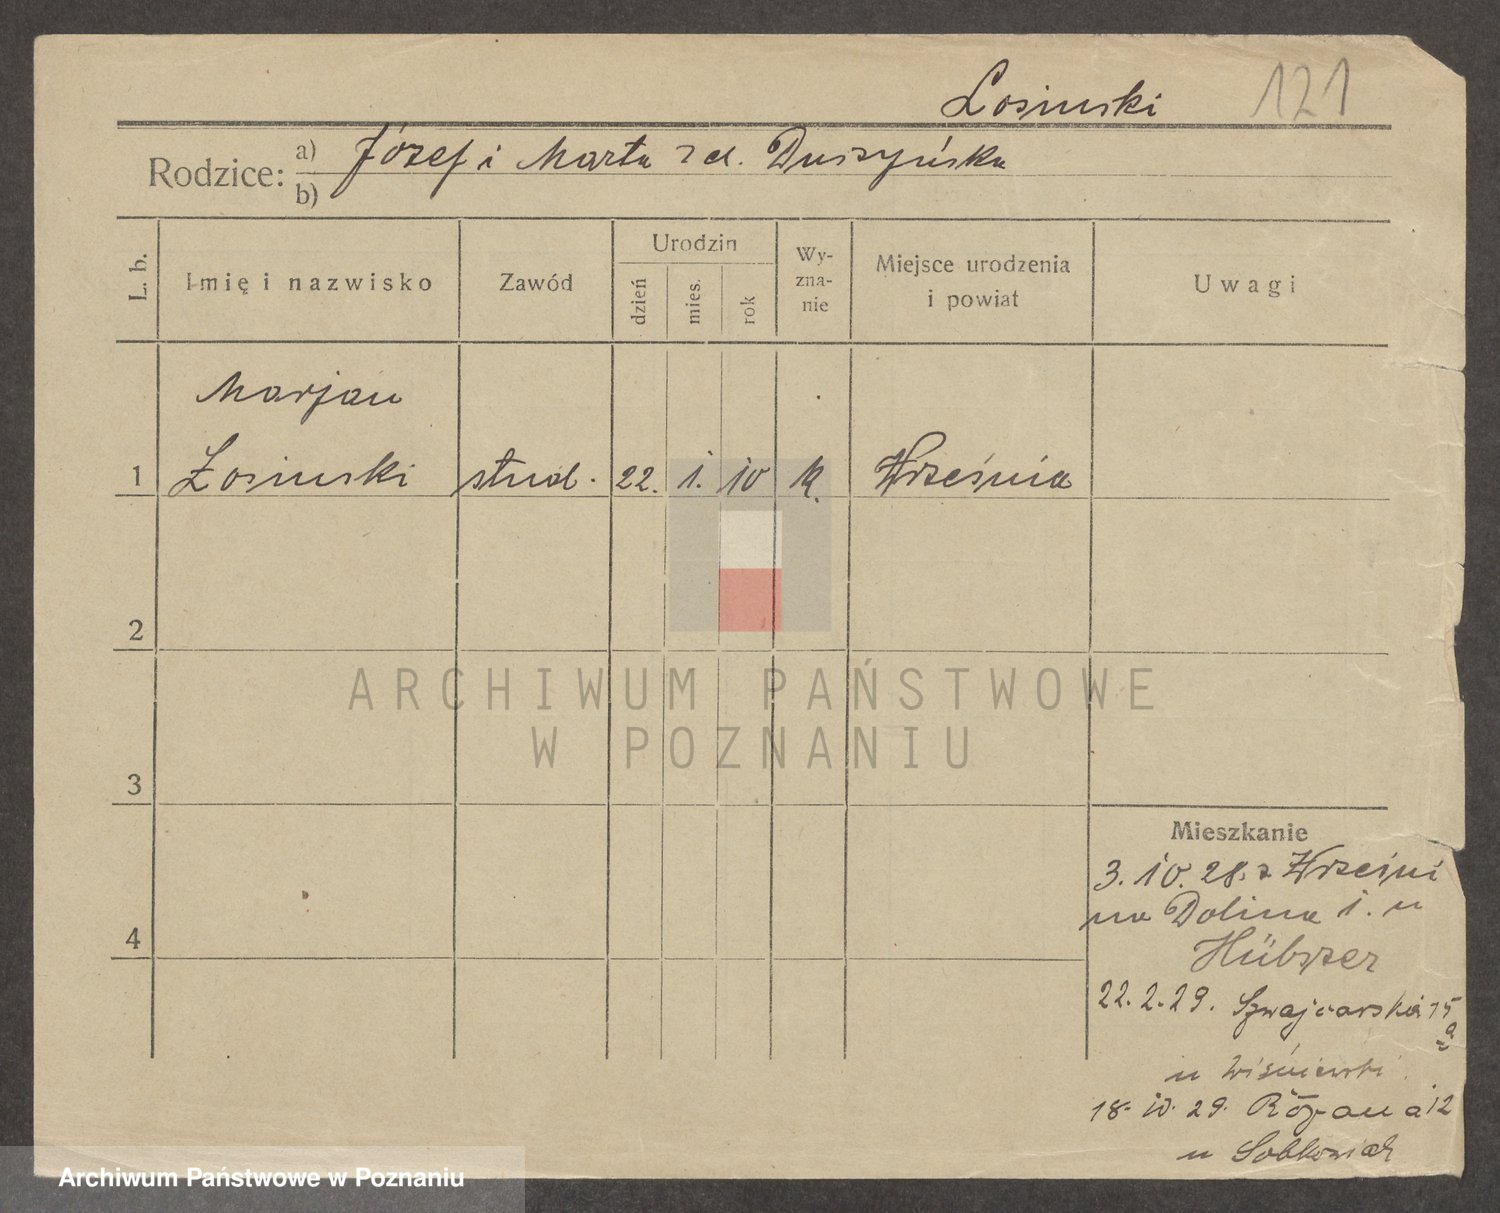 Łosinski 121
Rodzice: a) Józef i Marta zd. Duszyńska
b)
L. b. Imię i nazwisko Zawód Urodzin dzień mies. rok Wy-zna-nie Miejsce urodzenia i powiat Uwagi
Marjan
1 Łosinski stud. 22. 1. 10 k. Września
2
ARCHIWUM PAŃSTWOWE
W POZNANIU
3
Mieszkanie
3. 10. 28. z Wrześni
na Dolina 1. u
4
Hübszer
22. 2. 29. Szwajcarska 15
a
u Wiśniewski
18. 10. 29. Różana 12
u Sobkowiak
Archiwum Państwowe w Poznaniu